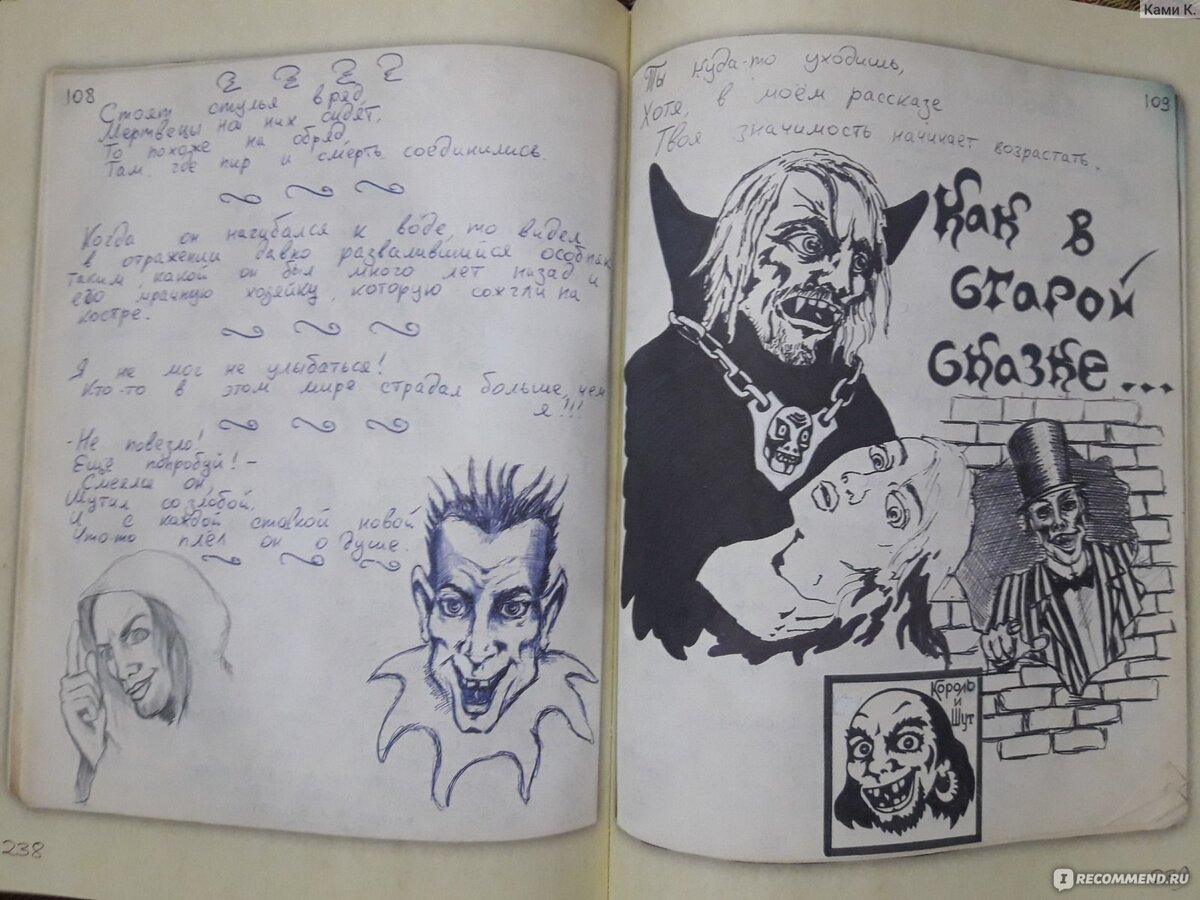 Ками К.
108
Стоят стулья в ряд,
Мертвецы на них сидят,
То похоже на обряд
Там, где пир и смерть соединились.
Когда он нагибался к воде, то видел
в отражении давно развалившийся особняк
таким, какой он был много лет назад и
его мрачную хозяйку, которую сожгли на
костре.
Я не мог не улыбаться!
Кто-то в этом мире страдал больше, чем
я!!!
-Не повезло!
Ещё попробуй! -
Смеялся он,
Шутил со злобой,
И с каждой ставкой новой
Что-то плёл он о душе.
238
Ты куда-то уходишь,
Хотя, в моём рассказе
Твоя значимость начинает возрастать.
109
Как в
старой
сказке...
Король
и
Шут
IRECOMMEND.RU